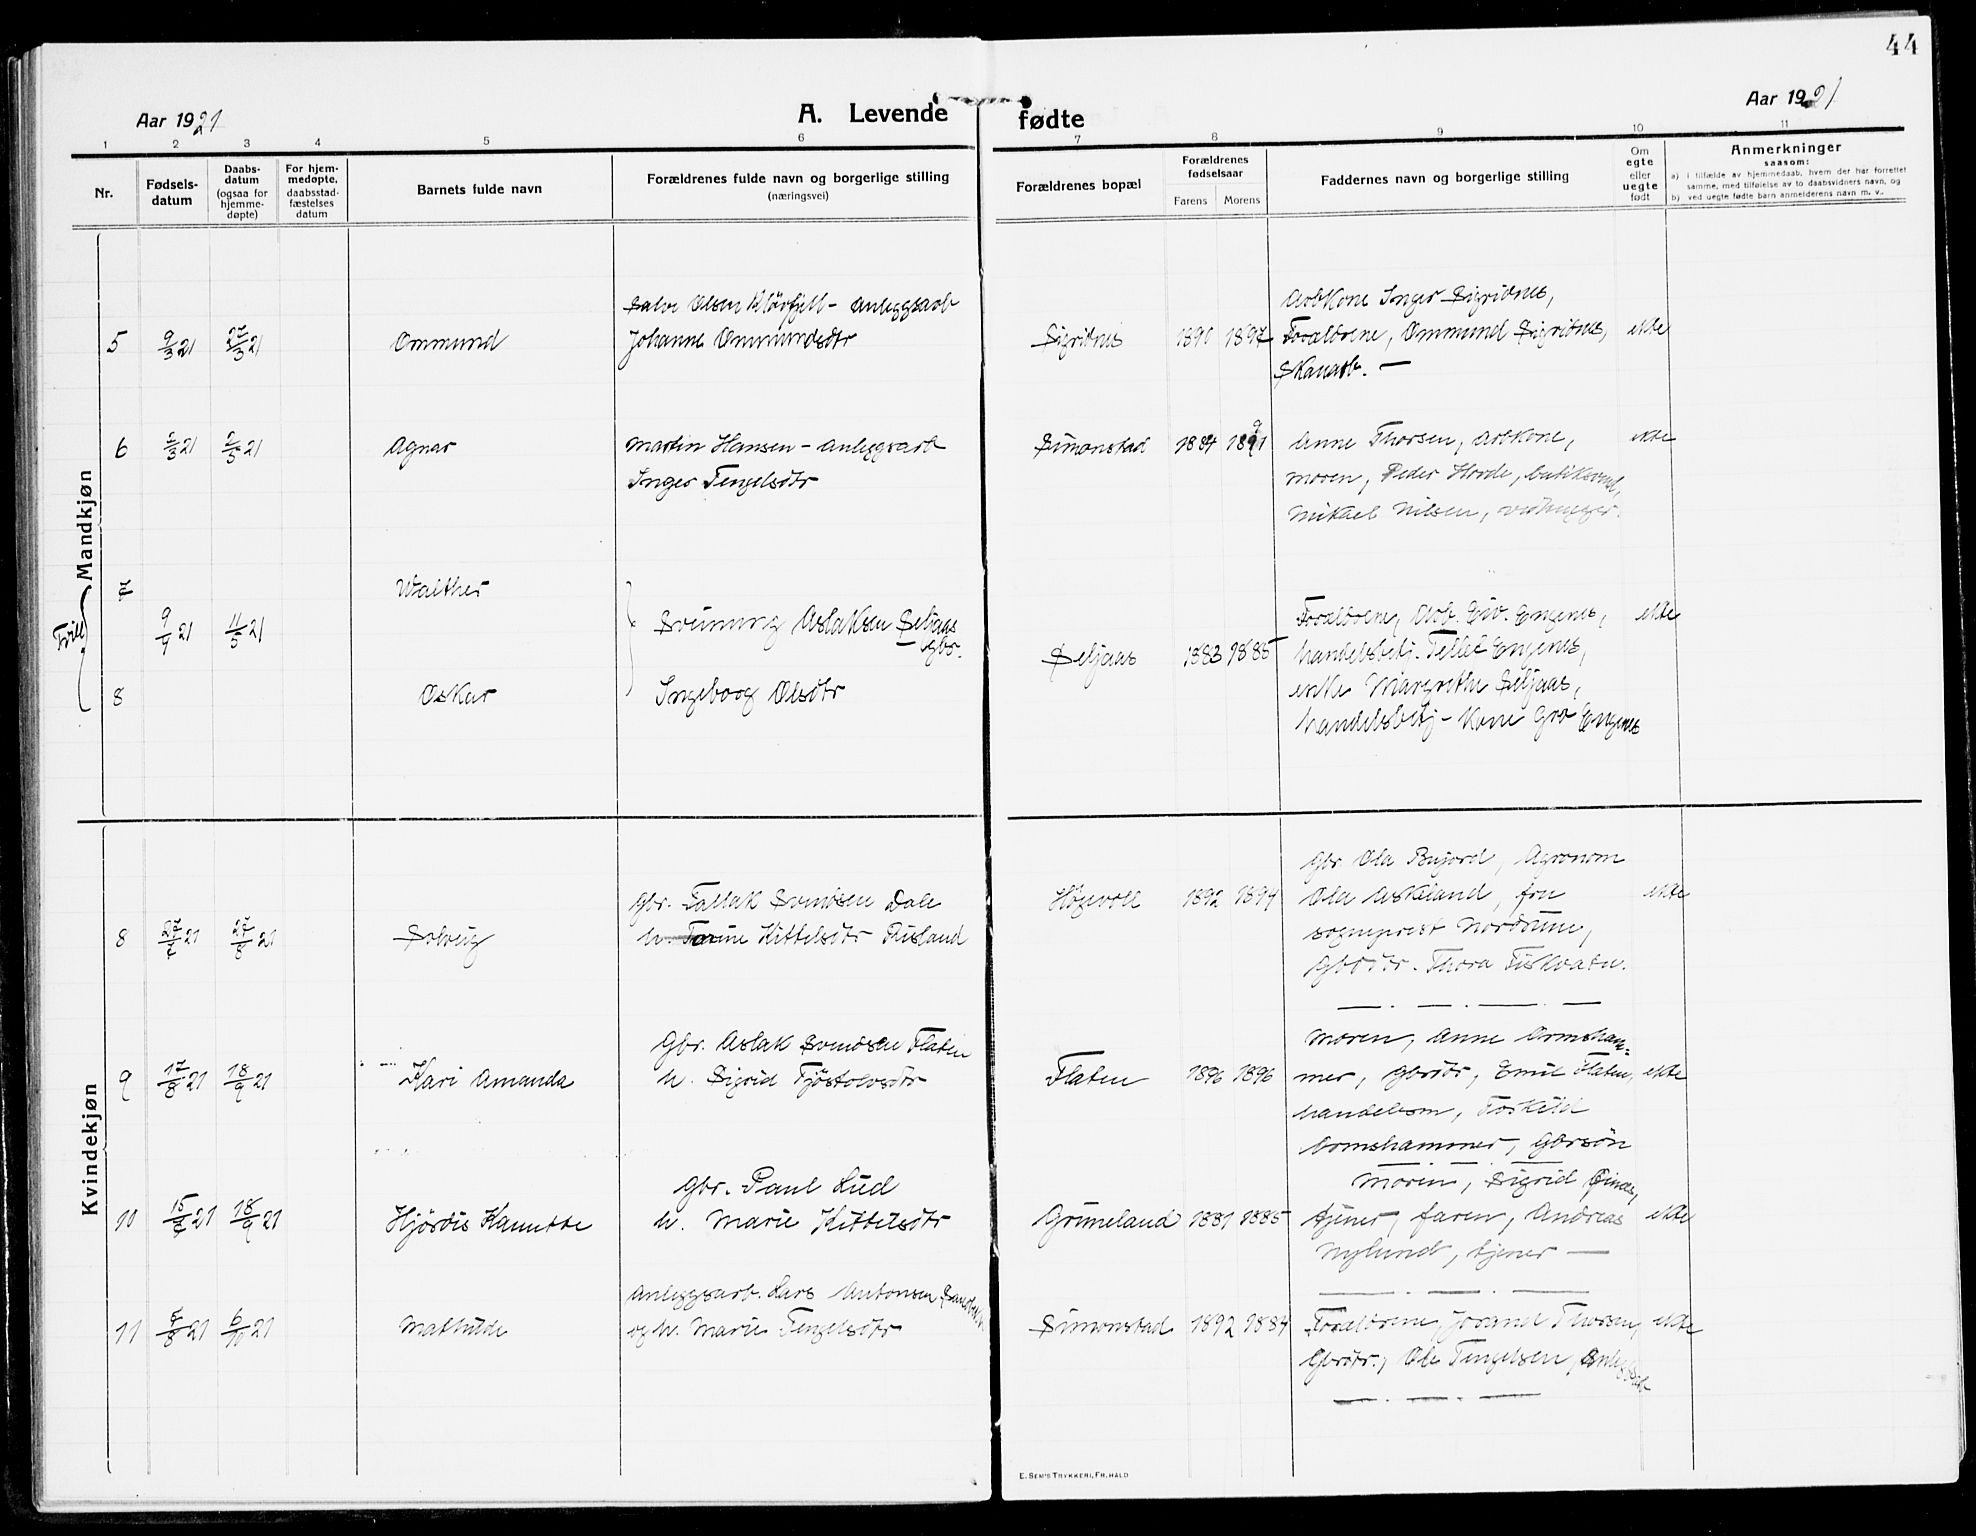 44
Aar 1921
A. Levende fødte
Aar 1921
1 2 3 4 5 6 7 8 9 10 11
Nr.
Fødsels-
datum
Daabs-
datum
(ogsaa for
hjemme-
døpte)
For hjem-
medøpte,
daabsstad-
fæstelses
datum
Barnets fulde navn
Forældrenes fulde navn og borgerlige stilling
(næringsvei)
Forældrenes bopæl
Forældrenes
fødselsaar
Farens Morens
Faddernes navn og borgerlige stilling
Om
egte
eller
uegte
født
Anmerkninger
saasom:
a) i tilfælde av hjemmedaab, hvem der har forrettet
samme, med tilføielse av to daabsvidners navn, og
b) ved uegte fødte barn anmelderens navn m. v..
Mandkjøn
Salve Olsen Klørfjell - anleggsarb
Arbkone Inger Sigridnes,
5 9/3 21 27/3 21 Ommund Johanne Ommundsdtr Sigridnes 1890 1897 Foraldrene, Ommund Sigridnes, ekte
Skauarb. —
6 2/3 21 2/5 21 Agnar Martin Hansen - anleggsarb Simonstad 1884 1891 Anne Thorsen, arbkone, ekte
Inger Tengelsdtr moren, Peder Horde, butiksvend,
Mikael Nilsen, vedhugger.
Tvill
7 Walther
9/4 21 11/5 21 Sveinung Aslaksen Seljaas Foraldrene, Arb. Eiv. Engenes, ekte
— gbr. Seljaas 1883 1885 handelsbetj. Tellef Engenes,
8 Oskar Ingeborg Olsdtr enke Margrethe Seljaas,
handelsbetj - kone Gro Engenes
Kvindekjøn
gbr. Ola Bujord, Agronom
gbr. Tallak Svendsen Dale Høgevoll 1892 1894 Ola Askeland, fru ekte
8 27/7 21 27/8 21 Solveig h. Torine Kittelsdtr Risland sogneprest Nordrum,
Gbrdtr. Thora Fiskvatn.
Gbr. Aslak Svendsen Flaten moren, Anne Ormsham-
9 17/8 21 18/9 21 Kari Amanda h. Sigrid Tjøstolvsdtr Flaten 1896 1896 mer, gbrdtr, Emil Flaten, ekte
handelsm, Torkild
Ormshammer, Gbrsøn
Gbr. Paul Lud moren, Sigrid
10 15/8 21 18/9 21 Hjørdis Kanutte h. Marie Kittelsdtr Gruneland 1881 1885 tjener, faren, Andreas ekte
Nylund, tjener —
Anleggsarb. Lars Antonsen Sandbekk
11 5/8 21 6/11 21 Mathilde og h. Marie Tengelsdtr Simonstad 1892 1884 Foraldrene, Jorand Thorsen, ekte
Gbrdtr., Ole Tengelsen, Anleggsarb
E. SEM'S TRYKKERI, FR.HALD